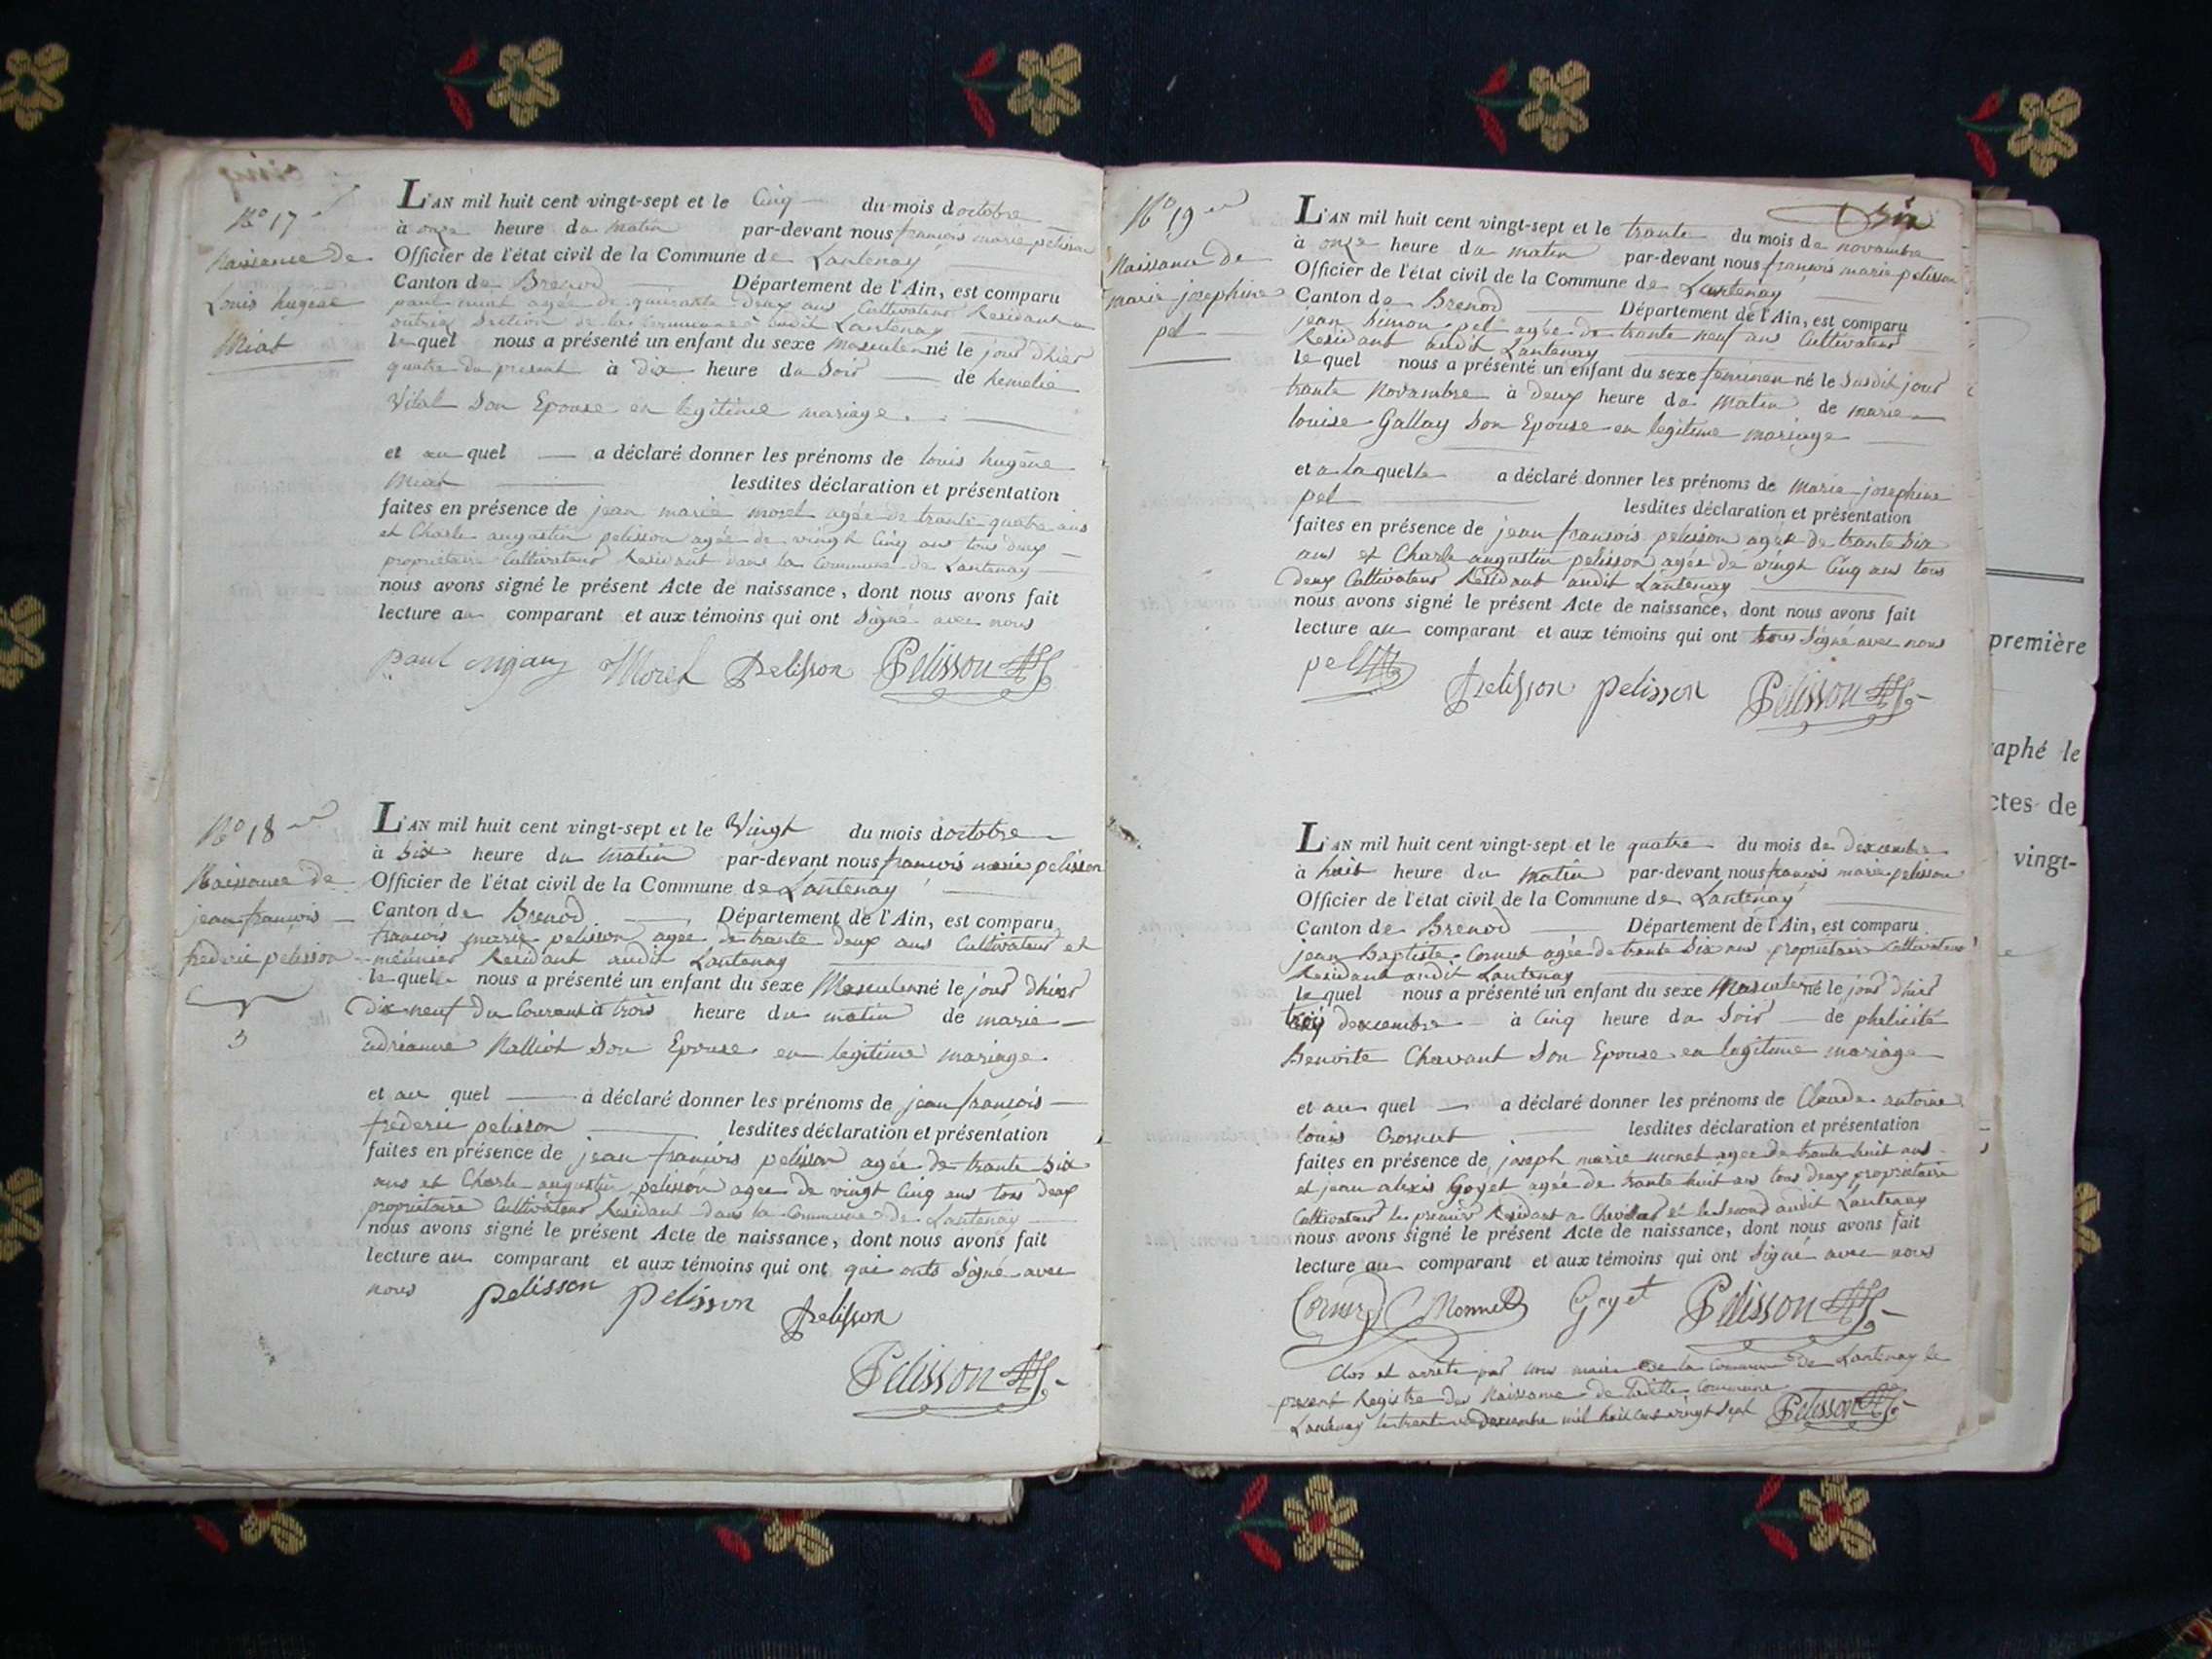 No 17
Naissance de
Louis hugene
Miat
L'AN mil huit cent vingt-sept et le Cinq du mois doctobre
à onze heure du matin par-devant nous francois marie pelisson
Officier de l'état civil de la Commune de Lantenay
Canton de Brenod Département de l'Ain, est comparu
paul miat agée de quarante deux ans Cultivateur Residant a
outriaz Section de la Commune audit Lantenay
le quel nous a présenté un enfant du sexe Masculen né le jour dhier
quatre du present à dix heure du Soir de
Vital Son Epouse en legitime mariage
et au quel a déclaré donner les prénoms de louis hugène
Miat lesdites déclaration et présentation
faites en présence de jean marie morel agée de trante quatre ans
et Charle augustin pelisson agée de vingt Cinq ans tous deux
propriétaire Cultivateur Residant dans la Commune de Lantenay
nous avons signé le présent Acte de naissance, dont nous avons fait
lecture au comparant et aux témoins qui ont Signé avec nous
paul Morel Pelisson Pelisson
No 18
Naissance de
jean francois
frederic pelisson
3
L'AN mil huit cent vingt-sept et le Vingt du mois doctobre
à Six heure du matin par-devant nous francois marie pelisson
Officier de l'état civil de la Commune de Lantenay
Canton de Brenod Département de l'Ain, est comparu
francois marie pelisson agée de trante deux ans Cultivateur et
meùnier Residant audit Lantenay
le quel nous a présenté un enfant du sexe Masculen né le jour dhier
Dix neuf du Courant à trois heure du matin de marie
adrianne Nalliot Son Epouse en legitime mariage
et au quel a déclaré donner les prénoms de jean francois
frederic pelisson lesdites déclaration et présentation
faites en présence de jean francois pelisson agée de trante Six
ans et Charle augustin pelisson agée de vingt Cinq ans tous deux
propriétaire Cultivateur Residant dans la Commune de Lantenay
nous avons signé le présent Acte de naissance, dont nous avons fait
lecture au comparant et aux témoins qui ont qui onts Signé avec
nous pelisson pelisson Pelisson
Pelisson
Six
No 19
Naissance de
marie josephine
pel
L'AN mil huit cent vingt-sept et le trante du mois de novambre
à onze heure du matin par-devant nous francois marie pelisson
Officier de l'état civil de la Commune de Lantenay
Canton de Brenod Département de l'Ain, est comparu
jean Simon pel agée de trante neuf ans Cultivateur
Residant audit Lantenay
le quel nous a présenté un enfant du sexe feminen né le Susdit jour
trante Novambre à deux heure du Matin de marie
louise Gallay Son Epouse en legitime mariage
et a la quelle a déclaré donner les prénoms de Marie josephine
pel lesdites déclaration et présentation
faites en présence de jean francois pelisson agée de trante Six
ans et Charle augustin pelisson agée de vingt Cinq ans tous
deux Cultivateur Residant audit Lantenay
nous avons signé le présent Acte de naissance, dont nous avons fait
lecture au comparant et aux témoins qui ont tous Signé avec nous
pel
Pelisson pelisson Pelisson
L'AN mil huit cent vingt-sept et le quatre du mois de dexcembre
à huit heure du matin par-devant nous francois marie pelisson
Officier de l'état civil de la Commune de Lantenay
Canton de Brenod Département de l'Ain, est comparu
jean Baptiste Cornut agée de trante Six ans propriétaire Cultivateur
Residant audit Lantenay
le quel nous a présenté un enfant du sexe Masculen né le jour dhier
trois dexcembre à Cinq heure du Soir de phelicité
Benoite Chavant Son Epouse en legitime mariage
et au quel a déclaré donner les prénoms de Claude antoine
louis lesdites déclaration et présentation
faites en présence de joseph marie monet agée de trante huit ans
et jean alexis Goyet agée de trante huit ans tous deux propriétaire
Cultivateur le premier Residant a Chevillard et le Second audit Lantenay
nous avons signé le présent Acte de naissance, dont nous avons fait
lecture au comparant et aux témoins qui ont Signé avec nous
Monnet Goyet Pelisson
Clos et arrêté par nous maire de la Commune de Lantenay le
present Registre des Naissance de laditte Commune
Lantenay le trante dexcembre mil huit cent vingt Sept Pelisson
première
aphé le
ctes de
vingt-